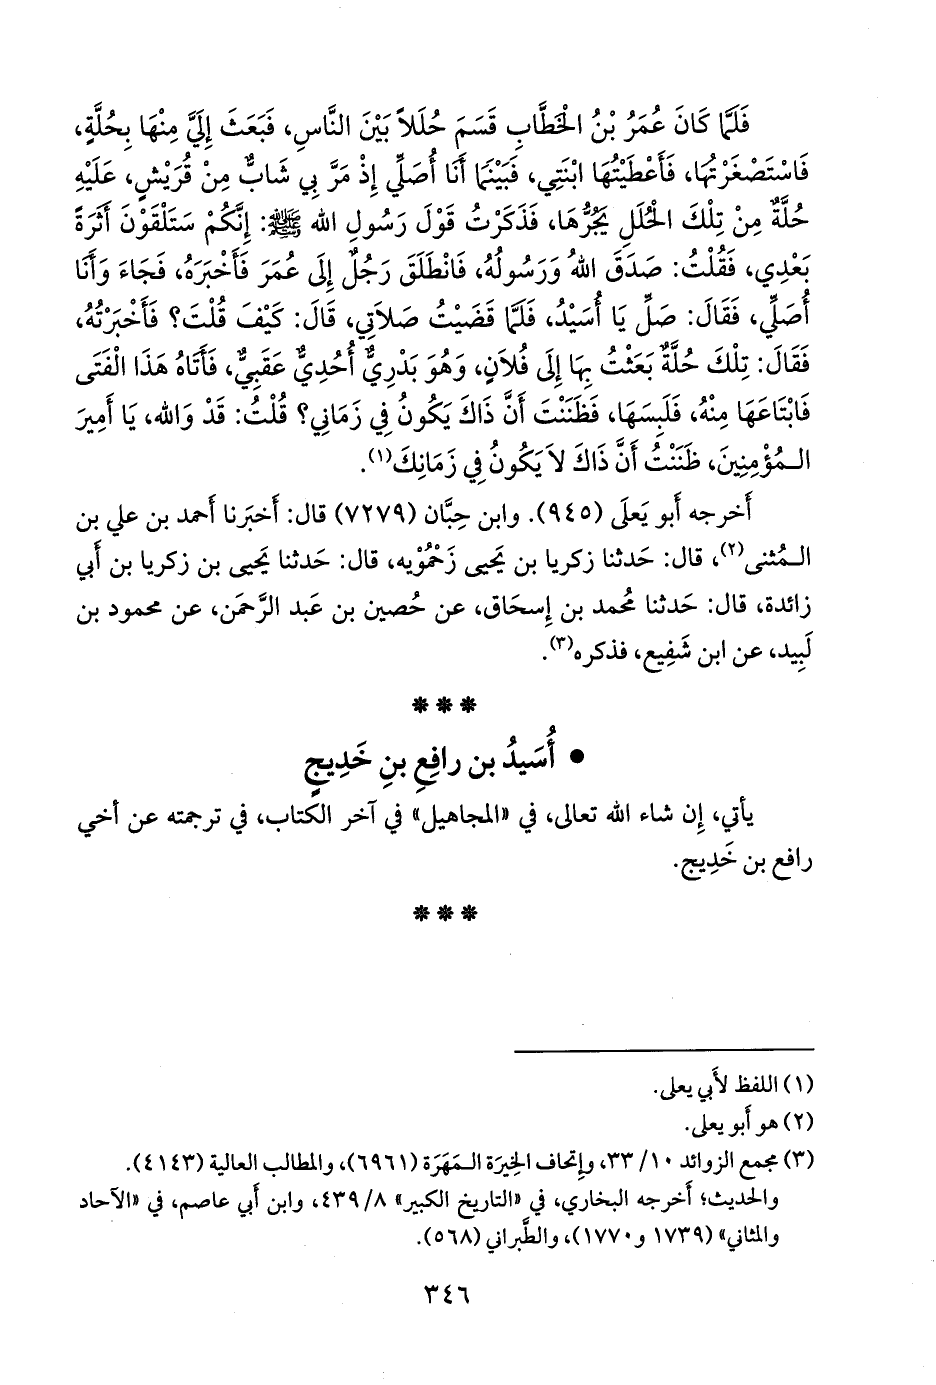 فَلَمَّا كَانَ عُمَرُ بْنُ الْخَطَّابِ قَسَمَ حُلَلاً بَيْنَ النَّاسِ، فَبَعَثَ إِلَيَّ مِنْهَا بِحُلَّةٍ،
فَاسْتَصْغَرْتُهَا، فَأَعْطَيْتُهَا ابْنَتِي، فَبَيْنَمَا أَنَا أُصَلِّي إِذْ مَرَّ بِي شَابٌّ مِنْ قُرَيْشٍ، عَلَيْهِ
حُلَّةٌ مِنْ تِلْكَ الْحُلَلِ يَجُرُّهَا، فَذَكَرْتُ قَوْلَ رَسُولِ الله ﷺ: إِنَّكُمْ سَتَلْقَوْنَ أَثَرَةً
بَعْدِي، فَقُلْتُ: صَدَقَ اللهُ وَرَسُولُهُ، فَانْطَلَقَ رَجُلٌ إِلَى عُمَرَ فَأَخْبَرَهُ، فَجَاءَ وَأَنَا
أُصَلِّي، فَقَالَ: صَلِّ يَا أُسَيْدُ، فَلَمَّا قَضَيْتُ صَلاَتِي، قَالَ: كَيْفَ قُلْتَ؟ فَأَخْبَرْتُهُ،
فَقَالَ: تِلْكَ حُلَّةٌ بَعَثْتُ بِهَا إِلَى فُلاَنٍ، وَهُوَ بَدْرِيٌّ أُحُدِيٌّ عَقَبِيٌّ، فَأَتَاهُ هَذَا الْفَتَى
فَابْتَاعَهَا مِنْهُ، فَلَبِسَهَا، فَظَنَنْتَ أَنَّ ذَاكَ يَكُونُ فِي زَمَانِي؟ قُلْتُ: قَدْ وَالله، يَا أَمِيرَ
الـمُؤْمِنِينَ، ظَنَنْتُ أَنَّ ذَاكَ لاَ يَكُونُ فِي زَمَانِكَ(١).
أَخرجه أَبو يَعلَى (٩٤٥). وابن حِبَّان (٧٢٧٩) قال: أَخبَرنا أَحمد بن علي بن
الـمُثنى(٢)، قال: حَدثنا زكريا بن يَحيى زَحْمُوْيه، قال: حَدثنا يَحيى بن زكريا بن أَبي
زائدة، قال: حَدثنا مُحمد بن إِسحَاق، عن حُصين بن عَبد الرَّحمَن، عن محمود بن
لَبِيد، عن ابن شَفِيع، فذكره(٣).
* * *
• أُسَيدُ بن رافِعِ بنِ خَدِيجٍ
يأتي، إِن شاء الله تعالى، في «المجاهيل» في آخر الكتاب، في ترجمته عن أَخي
رافع بن خَدِيج.
* * *
(١) اللفظ لأَبي يعلى.
(٢) هو أَبو يعلى.
(٣) مجمع الزوائد ١٠/ ٣٣، وإِتحاف الخِيرَة الـمَهَرَة (٦٩٦١)، والمطالب العالية (٤١٤٣).
والحديث؛ أَخرجه البخاري، في «التاريخ الكبير» ٨/ ٤٣٩، وابن أَبي عاصم، في «الآحاد
والمثاني» (١٧٣٩ و١٧٧٠)، والطَّبراني (٥٦٨).
٣٤٦